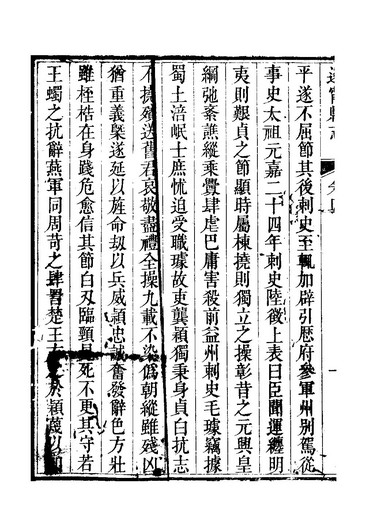 平遂不屈節其後刺史至輒加辟引歷府參軍州別駕從
事史太祖元嘉二十四年刺史陸徽上表曰臣聞運纏明
夷則艱貞之節顯時屬棟撓則獨立之操彰昔之元興皇
綱弛紊譙縱乘釁肆虐巴庸害殺前益州刺史毛璩竊據
蜀土涪岷士庶怵迫受職璩故吏龔穎獨秉身貞白抗志
不撓殯送舊君哀敬盡禮全操九載不染偽朝縱雖殘凶
猶重義槩遂延以旌命劫以兵威穎忠誠奮發辭色方壯
雖桎梏在身踐危愈信其節白刃臨頸見死不更其守若
王蠋之抗辭燕軍同周苛之肆詈楚王之於穎蔑以加